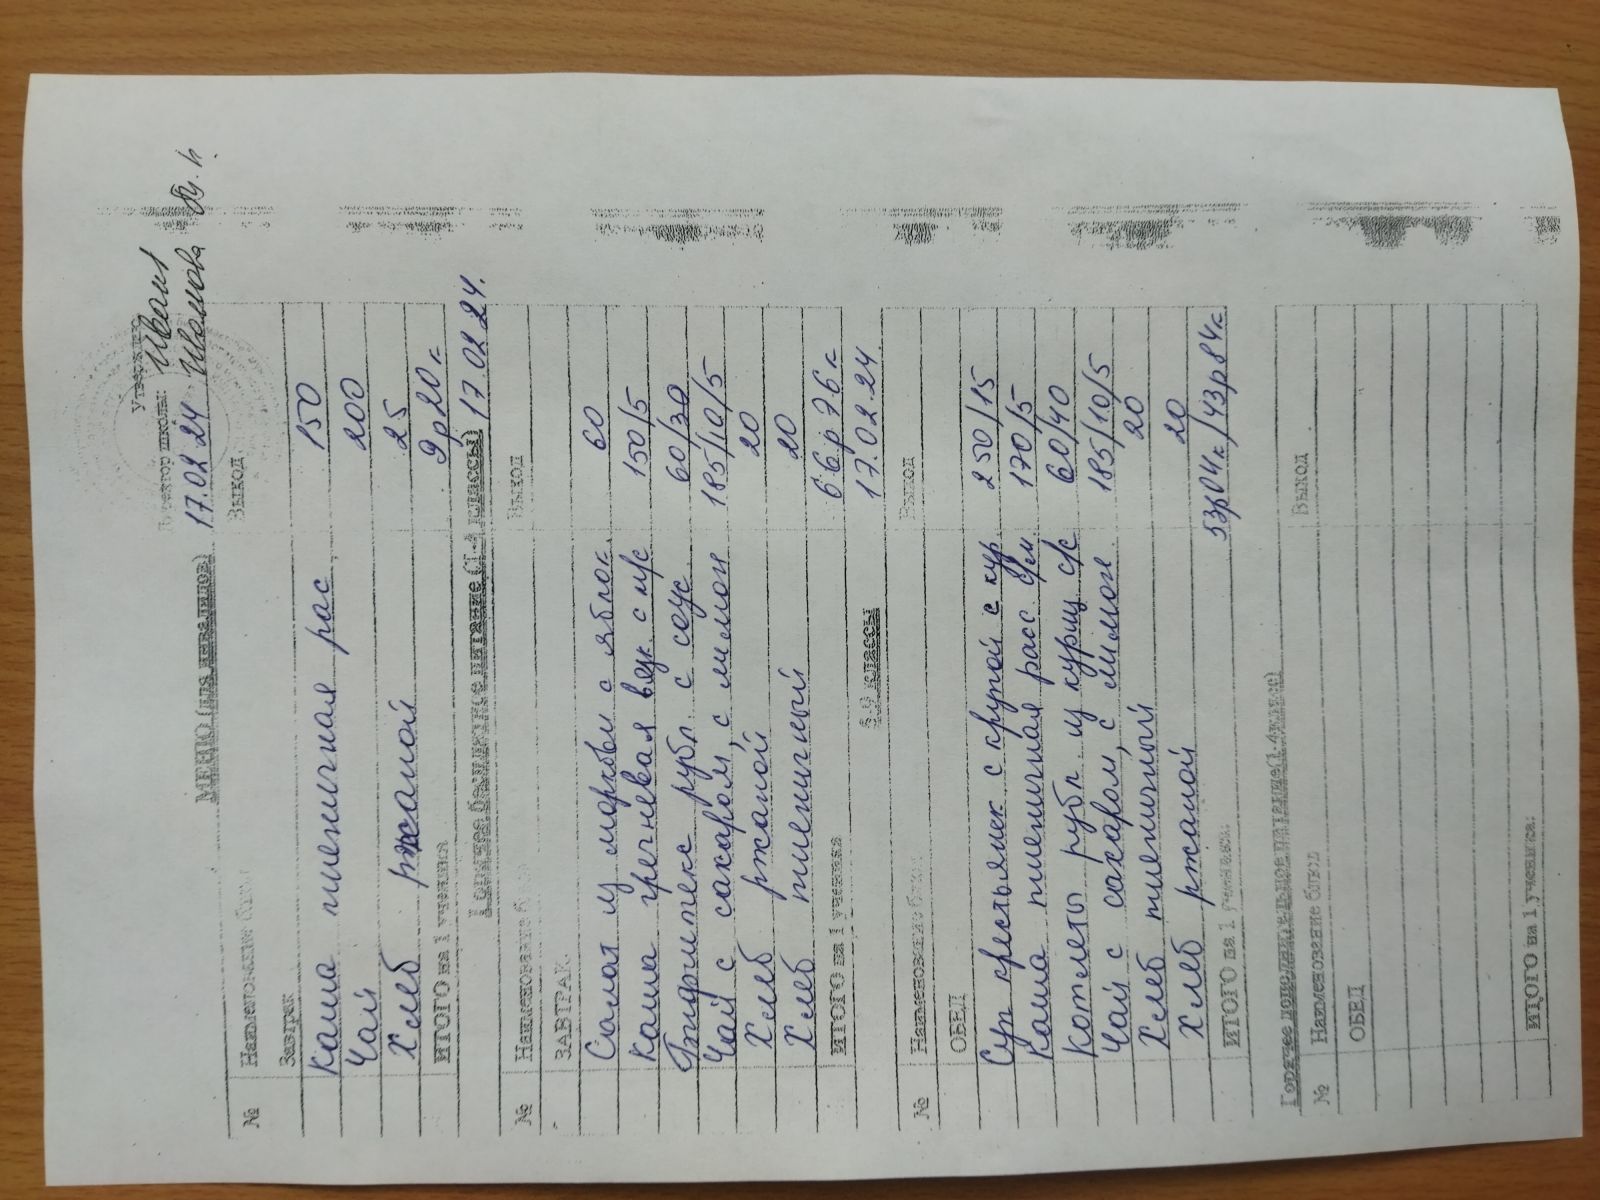 Утверждаю
Директор школы: Ивант
17.02 24 Иванова
МЕНЮ (для инвалидов)
№ Наименование блюд Выход
Завтрак
Каша пшеничная рас. 150
Чай 200
Хлеб ржаной 25
ИТОГО на 1 ученика 9р 20к
Горячее бесплатное питание (1-4 классы) 17 02 24.
№ Наименование блюд Выход
ЗАВТРАК.
Салат из моркови с яблок. 60
Каша гречневая вязк. с м/с 150/5
Бифштекс рубл. с соус 60/30
Чай с сахаром, с лимон 185/10/5
Хлеб ржаной 20
Хлеб пшеничный 20
ИТОГО на 1 ученика 66р 76к
5-9 классы 17.02.24.
№ Наименование блюд Выход
ОБЕД
Суп крестьянск с крупой с кур 250/15
Каша пшеничная расс с/м 170/5
Котлеты рубл. из куриц с/с 60/40
Чай с сахаром, с лимон 185/10/5
Хлеб пшеничный 20
Хлеб ржаной 20
ИТОГО на 1 ученика: 53р04к/43р84к
Горячее дополнительное питание(1-4класс)
№ Наименование блюд Выход
ОБЕД
ИТОГО на 1 ученика: